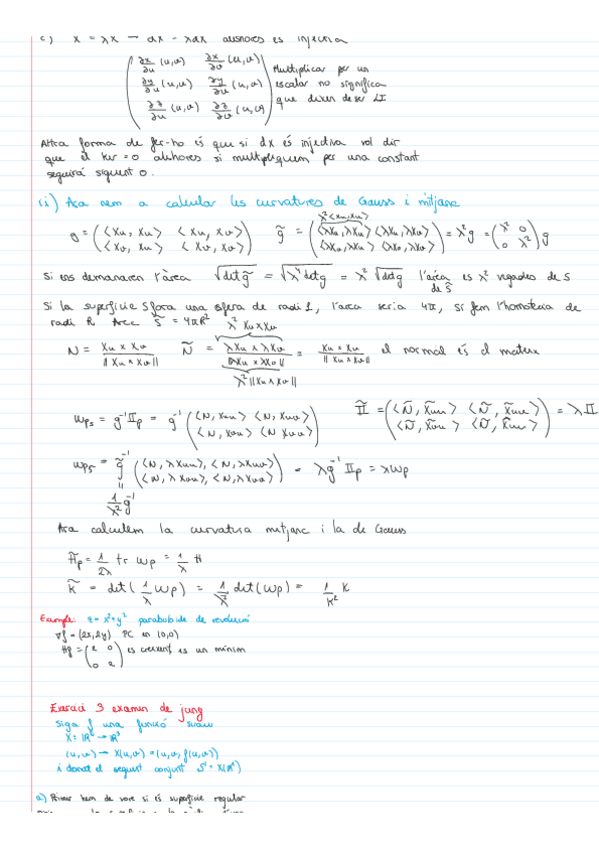 c) x̃ = λx → dx̃ = λdx aleshores és injectiva
( ∂x/∂u (u,v) ∂x/∂v (u,v) )
( ∂y/∂u (u,v) ∂y/∂v (u,v) )
( ∂z/∂u (u,v) ∂z/∂v (u,v) )
Multiplicar per un
escalar no significa
que deixen de ser LI
Altra forma de fer-ho és que si dx és injectiva vol dir
que el ker = 0 aleshores si multipliquem per una constant
seguirà siguent 0.
(i) Ara anem a calcular les curvatures de Gauss i mitjana
g = (⟨Xu, Xu⟩ ⟨Xu, Xv⟩ / ⟨Xv, Xu⟩ ⟨Xv, Xv⟩) g̃ = (⟨λXu, λXu⟩ ⟨λXu, λXv⟩ / ⟨λXv, λXu⟩ ⟨λXv, λXv⟩) = λ²g = (λ² 0 / 0 λ²) g
λ²⟨Xu, Xu⟩
Si ens demanaren l'àrea √det g̃ = √λ⁴ det g = λ² √det g l'àrea és λ² vegades de S
de S̃
Si la superfície S fora una esfera de radi 1, l'àrea seria 4π, si fem l'homotècia de
radi R Àrea S̃ = 4πR²
λ² Xu × Xv
N = Xu × Xv / ||Xu × Xv|| Ñ = λXu × λXv / ||λXu × λXv|| = Xu × Xv / ||Xu × Xv|| el normal és el mateix
λ² ||Xu × Xv||
Wp_S = g⁻¹ IIp = g⁻¹ (⟨N, Xuu⟩ ⟨N, Xuv⟩ / ⟨N, Xvu⟩ ⟨N, Xvv⟩) ĨI = (⟨Ñ, X̃uu⟩ ⟨Ñ, X̃uv⟩ / ⟨Ñ, X̃vu⟩ ⟨Ñ, X̃vv⟩) = λ II
Wp_S̃ = g̃⁻¹ (⟨N, λXuu⟩, ⟨N, λXuv⟩ / ⟨N, λXvu⟩, ⟨N, λXvv⟩) = λ g̃⁻¹ IIp = λWp
||
1/λ² g⁻¹
Ara calculem la curvatura mitjana i la de Gauss
H̃p = 1/2λ tr Wp = 1/λ H
K̃ = det(1/λ Wp) = 1/λ² det(Wp) = 1/K² K
Exemple: z = x² + y² paraboloide de revolució
∇f = (2x, 2y) PC en (0,0)
Hf = (2 0 / 0 2) és creixent és un mínim
Exercici 3 examen de juny
Siga f una funció suau
X: ℝ² → ℝ³
(u,v) → X(u,v) = (u, v, f(u,v))
i donat el seguent conjunt S = X(ℝ²)
a) Primer hem de vore si és superfície regular